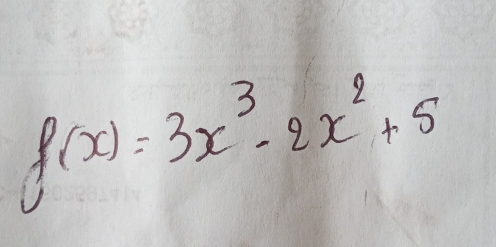 f(x) = 3x³ - 2x² + 5